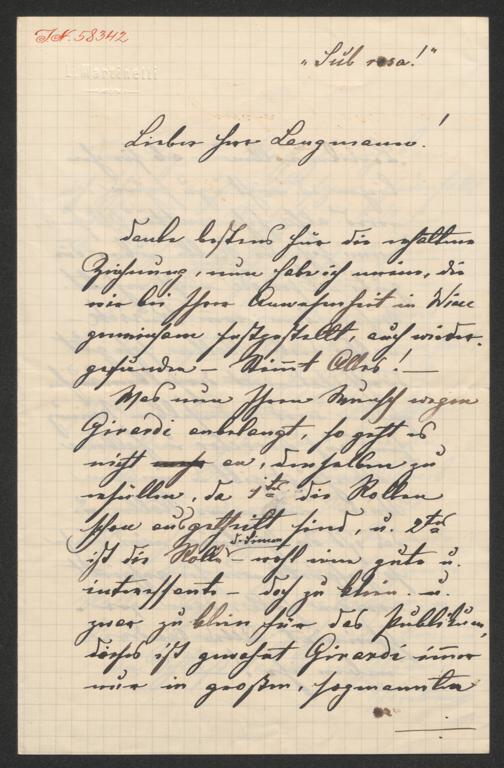 IN. 58342
„Sub rosa!“
L. Martinelli
Lieber Herr Langmann!
danke bestens für die erhaltene
Zeichnung, nun habe ich meine, die
wir bei Ihrer Anwesenheit in Wien
gemeinsam festgestellt, auch wieder-
gefunden – Stimmt Alles! –
Was nun Ihren Wunsch wegen
Girardi anbelangt, so geht es
nicht an, denselben zu
erfüllen, da 1tes die Rollen
schon ausgetheilt sind, u. 2tes
ist die Rolle d. Simon – wohl eine gute u.
interessante – doch zu klein. u.
zwar zu klein für das Publikum,
dieses ist gewohnt Girardi immer
nur in großen, sogenannten